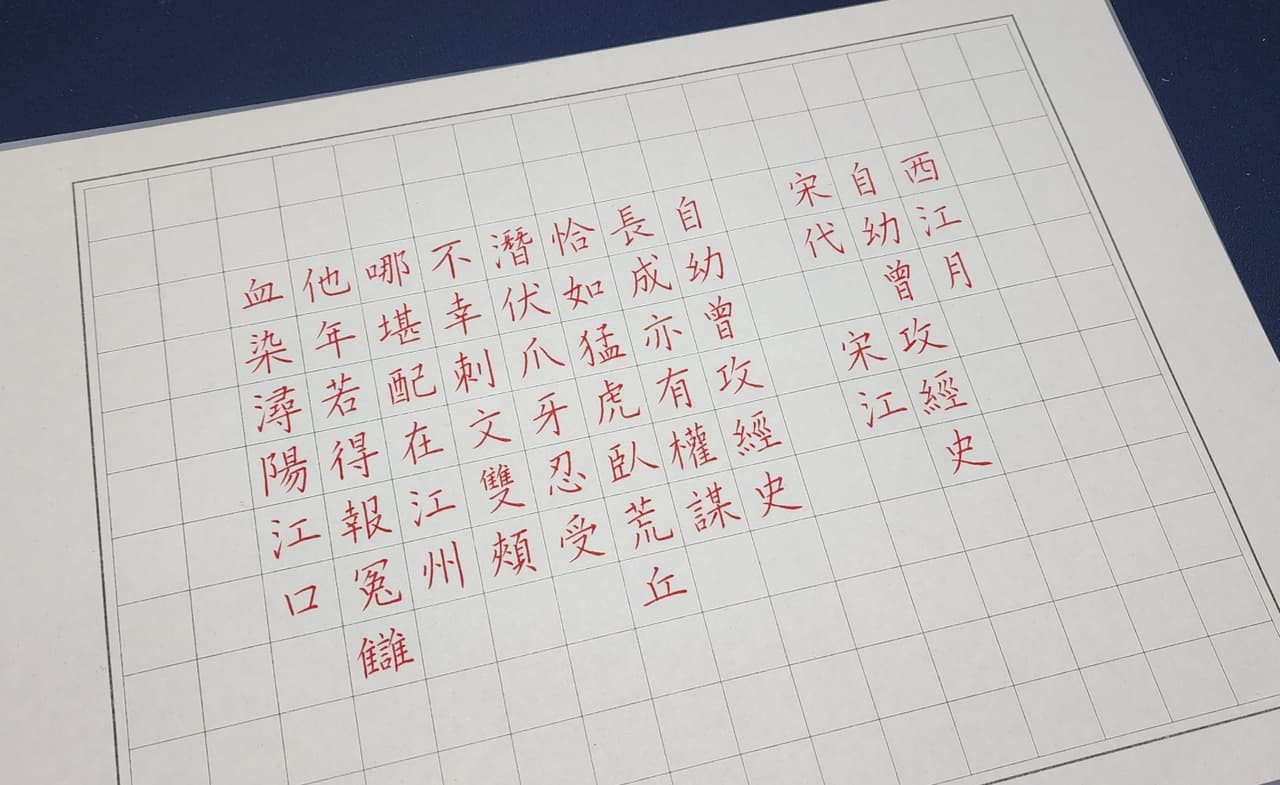 西江月
自幼曾攻經史
宋代 宋江
自幼曾攻經史
長成亦有權謀
恰如猛虎臥荒丘
潛伏爪牙忍受
不幸刺文雙頰
哪堪配在江州
他年若得報冤讎
血染潯陽江口